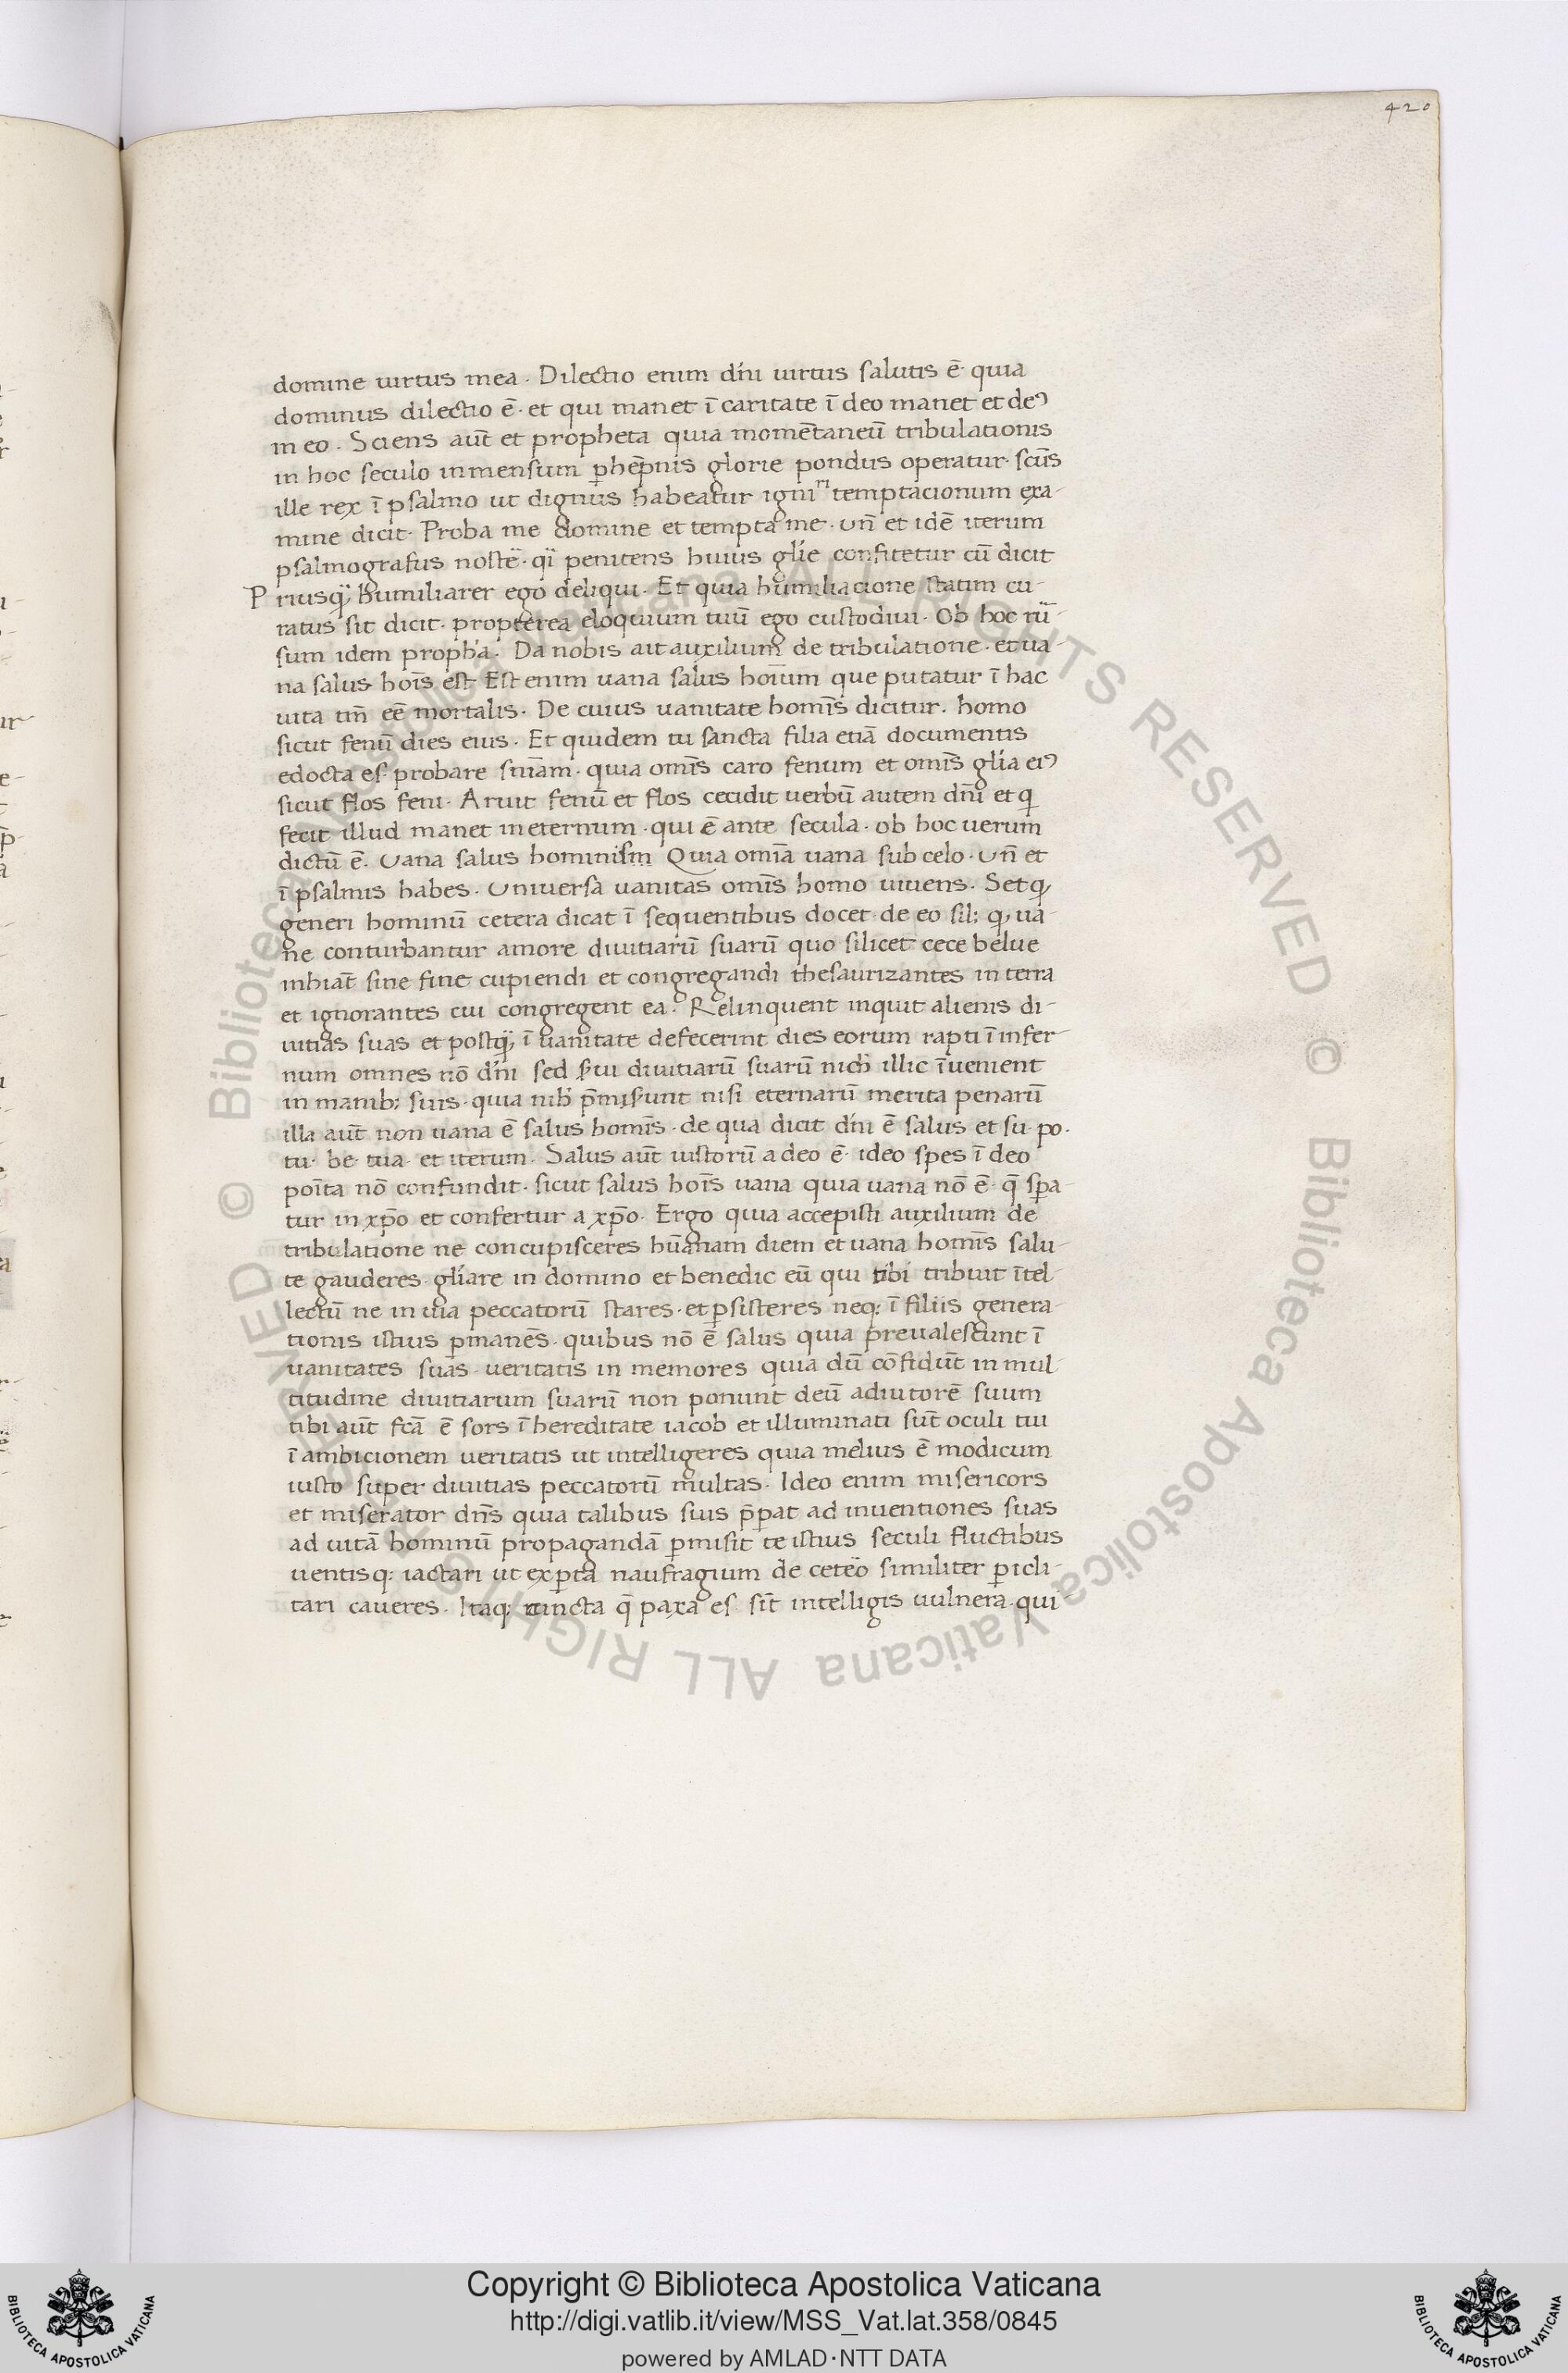 420
domine uirtus mea · Dilectio enim dn̄i uirtus salutis ē quia
dominus dilectio ē · et qui manet ī caritate ī deo manet et deꝰ
in eo · Sciens aūt et propheta quia momētaneū tribulationis
in hoc seculo inmensum ꝑhēpnis glorie pondus operatur · scūs
ille rex ī psalmo ut dignus habeatur igni temptacionum exa-
mine dicit · Proba me domine et tempta me · un̄ et idē iterum
psalmografus penitens huius glīe confitetur cū dicit
Priusq̄ humiliarer ego deliqui · Et quia humiliacione statim cu-
ratus sit dicit · propterea eloquium tuū ego custodiui · Ob hoc rū-
sum idem proph̄a · Da nobis ait auxilium de tribulatione · et ua-
na salus hoīs est Est enim uana salus hoīum que putatur ī hac
uita tm̄ eē mortalis · De cuius uanitate homīs dicitur · homo
sicut fenū dies eius · Et quidem tu sancta filia etiā documentis
edocta es probare · quia omīs caro fenum et omīs glīa eiꝰ
sicut flos feni · Aruit fenū et flos cecidit uerbū autem dn̄i et q
fecit illud manet in eternum · qui ē ante secula · ob hoc uerum
dictū ē · Uana salus Quia omīa uana sub celo · un̄ et
ī psalmis habes · Uniuersa uanitas omīs homo uiuens · Set q,
generi hominū cetera dicat ī sequentibus docet · de eo sil: q, ua-
ne conturbantur amore diuitiarū suarū quo silicet cece belue
inhiāt sine fine cupiendi et congregandi thesaurizantes in terra
et ignorantes cui congregent ea · Relinquent inquit alienis di-
uitias suas et postq̄, ī uanitate defecerint dies eorum rapti ī infer-
num omnes nō dn̄i sed s̄ui diuitiarū suarū nich̄ illic īuenient
in manib; suis · quia nih̄ p̄mis̄unt nisi eternarū merita penarū
illa aūt non uana ē salus homīs · de qua dicit dn̄i ē salus et su · po ·
tu · be · tua · et iterum · Salus aūt iustorū a deo ē · ideo spes ī deo
poīta nō confundit · sicut salus hoīs uana quia uana nō ē · q̄ sꝑa-
tur in xp̄o et confertur a xp̄o · Ergo quia accepisti auxilium de
tribulatione ne concupisceres hūanam diem et uana homīs salu-
te gauderes · glīare in domino et benedic eū qui tibi tribuit ītel-
lectū ne in uia peccatorū stares · et ꝑsisteres neq; ī filiis genera-
tionis istius ꝑmanēs · quibus nō ē salus quia preualescunt ī
uanitates suas · ueritatis in memores quia dū cōfidūt in mul-
titudine diuitiarum suarū non ponunt deū adiutorē suum
tibi aūt fcā ē sors ī hereditate iacob et illuminati sūt oculi tui
ī ambicionem ueritatis ut intelligeres quia melius ē modicum
iusto super diuitias peccatorū multas · Ideo enim misericors
et miserator dn̄s quia talibus suis p̄ꝑat ad inuentiones suas
ad uitā hominū propagandā ꝑmisit te istius seculi fluctibus
uentisq; iactari ut exꝑta naufragium de cetēo similiter ꝑicli-
tari caueres · Itaq; q̄ paxa es sīt intelligis uulnera · qui
© Biblioteca Apostolica Vaticana ALL RIGHTS RESERVED © Biblioteca Apostolica Vaticana ALL RIGHTS RESERVED
Copyright © Biblioteca Apostolica Vaticana
http://digi.vatlib.it/view/MSS_Vat.lat.358/0845
powered by AMLAD·NTT DATA
BIBLIOTECA APOSTOLICA VATICANA
BIBLIOTECA APOSTOLICA VATICANA